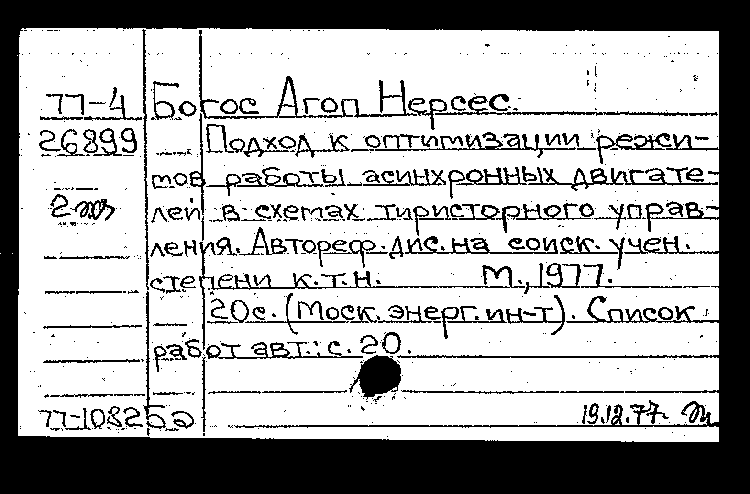 77-4 Богос Агоп Нерсес.
26899 Подход к оптимизации режи-
мов работы асинхронных двигате-
2 экз лей в схемах тиристорного управ-
ления. Автореф. дис. на соиск. учен.
степени к.т.н. М., 1977.
20с. (Моск. энерг. ин-т). Список
работ авт.: с. 20.
77-10825а 19.12.77.